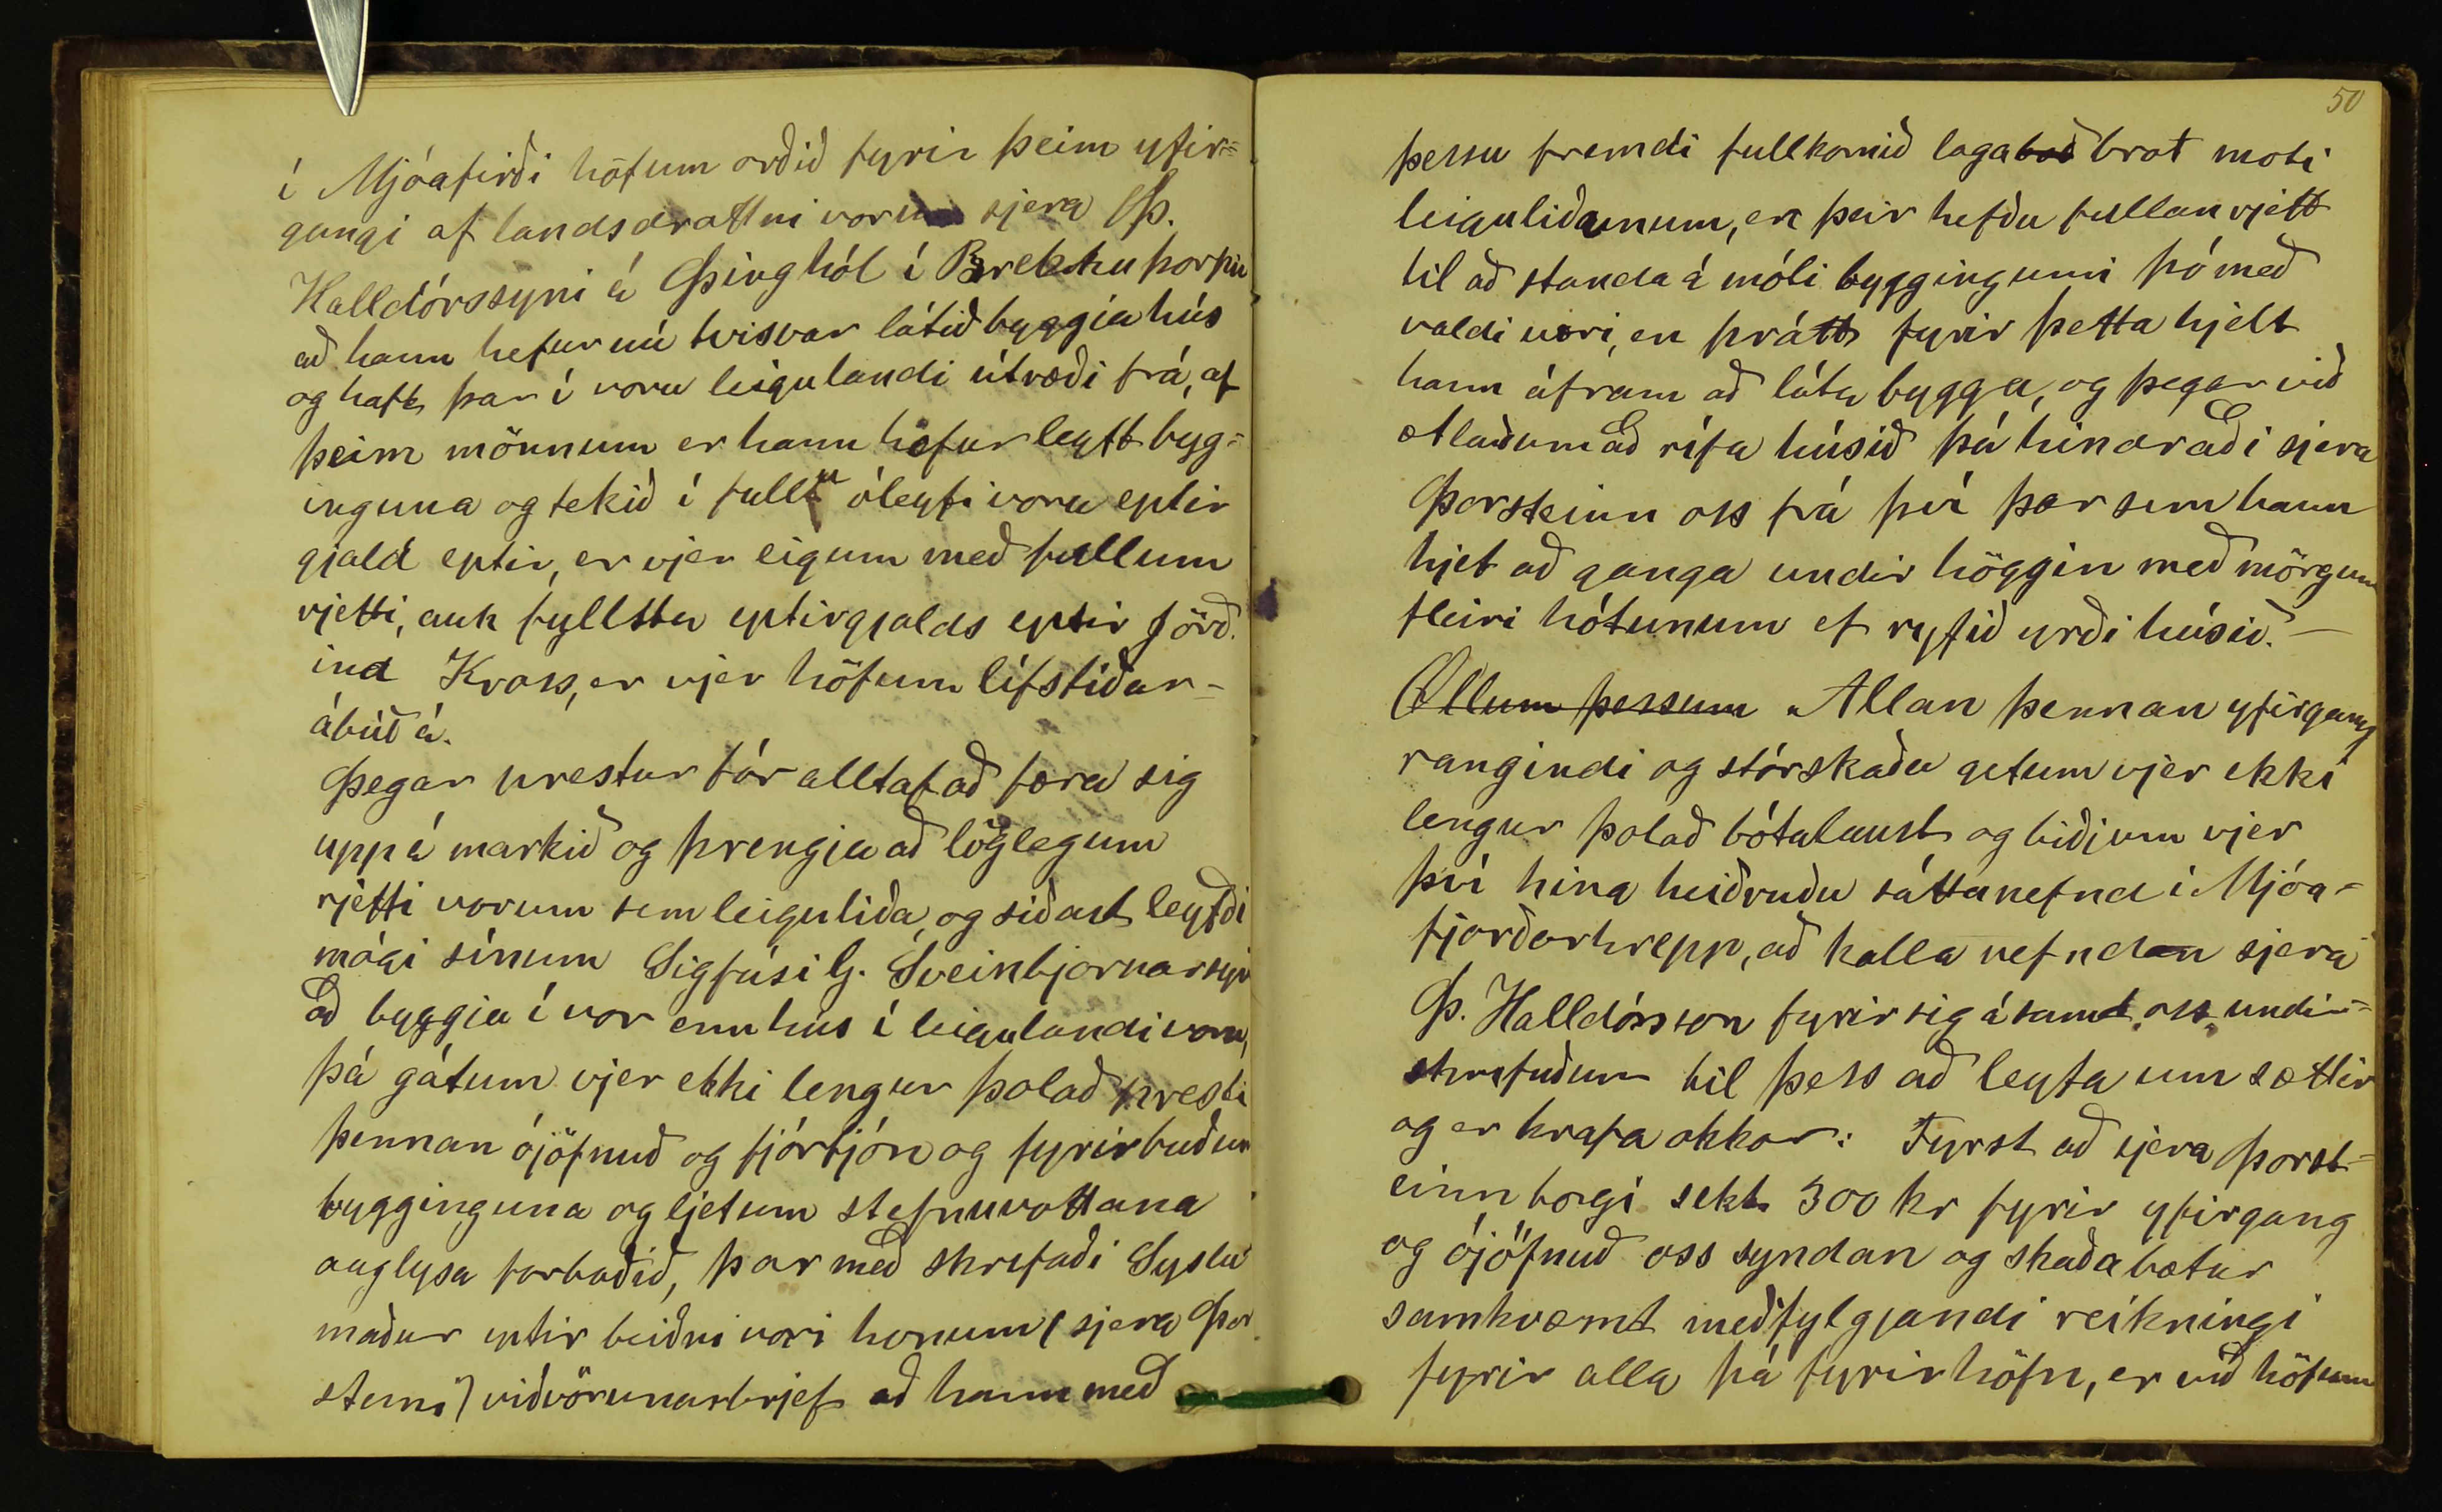 í Mjóafirði höfum orðið fyrir þeim yfir=
gangi af landsdrottni vorum sjera Þ.
Halldórssyni á Þinghól í Brekkuþorpi
að hann hefur nú tvisvar látið byggja hús
og haft þar í voru leigulandi útræði frá, af
þeim mönnum er hann hefur leyft byg=
inguna og tekið í fullu óleyfi voru eptir
gjald eptir, er vjer eigum með fullum
rjetti, auk fyllsta eptirgjalds eptir jörð.
ina Kross, er vjer höfum lífstíðar-
ábúð á.
Þegar prestur fór alltaf að færa sig
upp á markið og þrengja að löglegum
rjetti vorum sem leiguliða, og síðast leyfði
mági sínum Sigfúsi G. Sveinbjarnarsyni
að byggja í vor enn hús í leigulandi voru,
þá gátum vjer ekki lengur þolað presti
þennan ójöfnuð og fjártjón og fyrirbuðum
bygginguna og ljetum stefnuvottana
auglysa forboðið, þar með skrifaði Syslu
maður eptir beiðni vori honum (sjera Þor
steini) viðvörunarbrjef að hann með
50
þessu fremdi fullkomið lagaboð brot moti
leiguliðunum, en þeir hefðu fullan rjett
til að standa á móti byggingunni þó með
valdi væri, en þrátt fyrir þetta hjelt
hann áfram að láta bygga, og þegar við
ætluðum að rífa húsið þá hindraði sjera
Þorsteinn oss frá því þar sem hann
hjet að ganga undir höggin með mörgum
fleiri hótunum ef ryfið yrði húsið. —
Öllum þessum Allan þennan yfirgang
rangindi og stórskaða getum vjer ekki
lengur þolað bótalaust og biðjum vjer
því hina heiðruðu sáttanefnd í Mjóa=
fjarðarhrepp, að kalla nefndan sjera
Þ. Halldórsson fyrir sig ásamt oss undir=
skrifuðum til þess að leyta um sættir
og er krafa okkar: Fyrst að sjera Þorst=
einn borgi sekt 300 kr fyrir yfirgang
og ójöfnuð oss syndan og skaðabætur
samkvæmt meðfylgjandi reikningi
fyrir alla þá fyrirhöfn, er við höfum